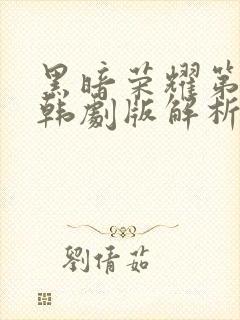 黑暗荣耀第
韩劇版解析
劉倩茹